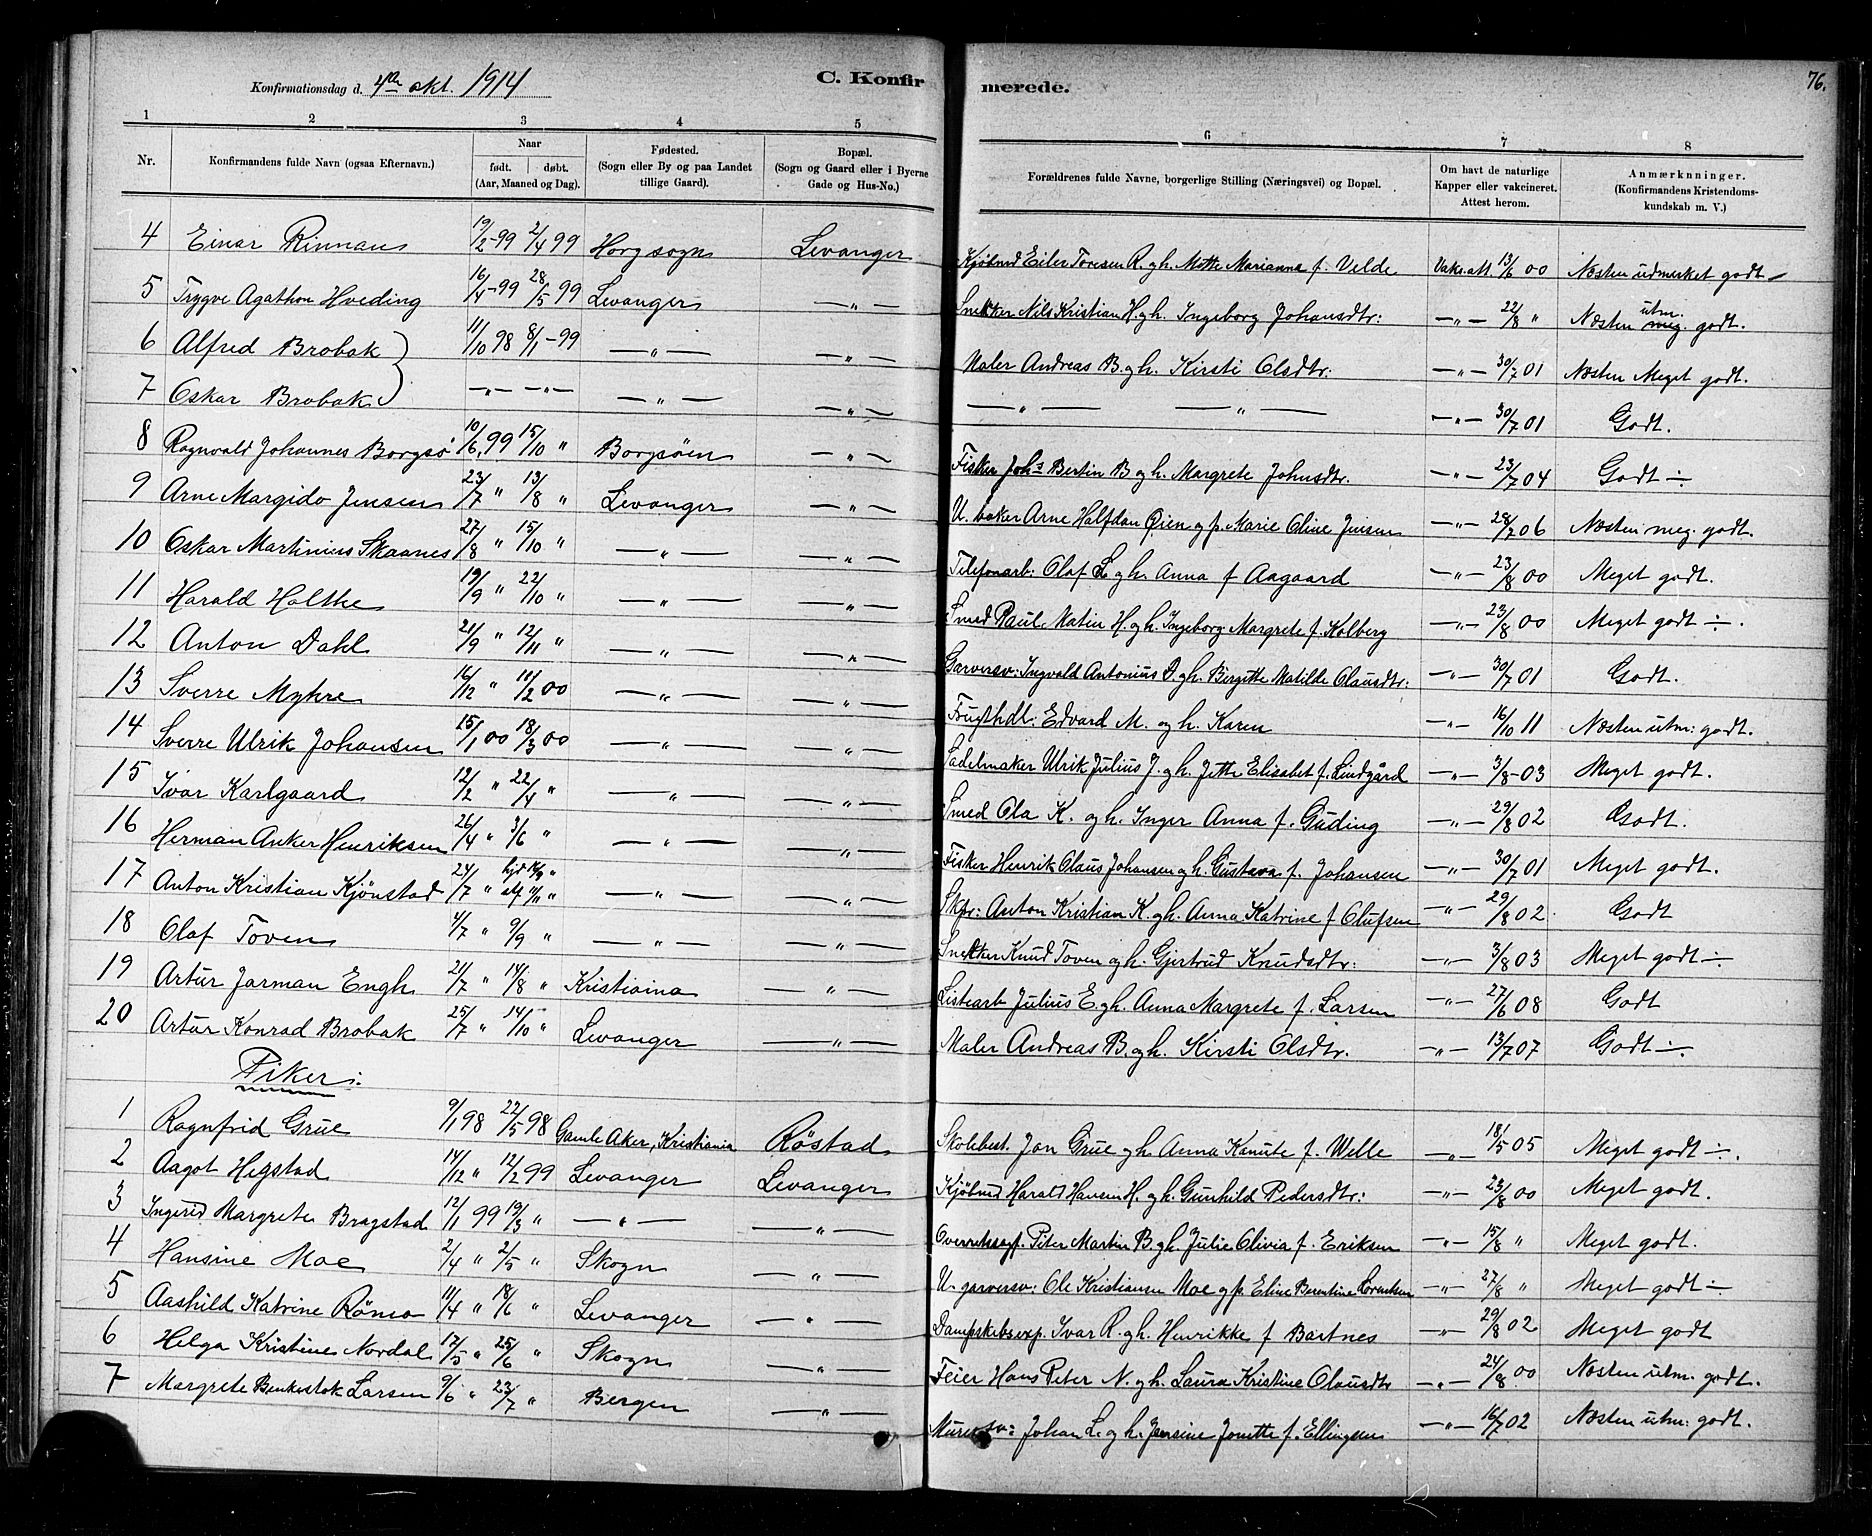 Konfirmationsdag d. 4de okt. 1914 C. Konfirmerede. 76.
1 2 3 4 5 6 7 8
Nr. Konfirmandens fulde Navn (ogsaa Efternavn.) Naar født. døbt. (Aar, Maaned og Dag). Fødested. (Sogn eller By og paa Landet tillige Gaard). Bopæl. (Sogn og Gaard eller i Byerne Gade og Hus-No.) Forældrenes fulde Navne, borgerlige Stilling (Næringsvei) og Bopæl. Om havt de naturlige Kapper eller vakcineret. Attest herom. Anmærknninger. (Konfirmandens Kristendomskundskab m. V.)
4 Einar Rinnan 19/2-99 2/4 99 Horg sogn Levanger Kjøbmd Eiler Toresen R. gh. Mette Marianna f. Velde Vaks.att. 13/6 00 Næsten udmerket godt
5 Trygve Agathon Hveding 16/4-99 28/5 99 Levanger —„— Snekker Nils Kristian H. gh. Ingeborg Johansdtr: —„— 22/8 „ Næsten utm. meg. godt.
6 Alfred Brobak 11/10 98 8/1-99 —„— —„— Maler Andreas B. gh. Kirsti Olsdtr: —„— 30/7 01 Næsten Meget godt.
7 Oskar Brobak —„— —„— —„— —„— —„— —„— —„— 30/7 01 Godt.
8 Ragnvald Johannes Borgsø 10/6 99 15/10 „ Borgsøen —„— Fisker Johs Bertin B gh. Margrete Johnsdtr. —„— 23/7 04 Godt ÷
9 Arne Margido Jensen 23/7 „ 13/8 „ Levanger —„— U. baker Arne Halfdan Øien g p. Marie Oline Jensen —„— 28/7 06 Næsten meg. godt.
10 Oskar Martinius Skaanes 27/8 „ 15/10 „ —„— —„— Telefonarb: Olaf S. gh. Anna f Aagaard —„— 23/8 00 Meget godt.
11 Harald Holthe 19/9 „ 22/10 „ —„— —„— Smed Paul Matin H. gh. Ingeborg Margrete f. Kolberg —„— 23/8 00 Meget godt ÷.
12 Anton Dahl 21/9 „ 12/11 „ —„— —„— Garversv: Ingvald Antonius D. gh. Birgitte Matilde Clausdtr: —„— 30/7 01 Godt.
13 Sverre Myhre 16/12 „ 11/2 00 —„— —„— Frugthdl: Edvard M. og h. Karen —„— 16/10 11 Næsten utm: godt.
14 Sverre Ulrik Johansen 15/1 00 18/3 00 —„— —„— Sadelmaker Ulrik Julius J. gh. Jette Elisabet f. Lindgård —„— 3/8-03 Meget godt.
15 Ivar Karlgaard 12/2 „ 22/4 „ —„— —„— Smed Ola K. og h. Inger Anna f. Guding —„— 29/8 02 Godt.
16 Herman Anker Henriksen 26/4 „ 3/6 „ —„— —„— Fisker Henrik Claus Johansen gh. Gustava f. Johansen —„— 30/7 01 Meget godt.
17 Anton Kristian Kjønstad 24/7 „ —„— —„— Skpr: Anton Kristian K. gh. Anna Katrine f Olufsen —„— 29/8 02. Godt
18 Olaf Toven 4/7 „ 9/9 „ —„— —„— Snekker Knud Toven gh. Gjertrud Knudsdtr: —„— 3/8 03 Meget godt ÷
19 Artur Jarman Engh 21/7 „ 14/8 „ Kristiaina —„— Listearb Julius E. gh. Anna Margrete f. Larsen —„— 27/6 08 Godt
20 Artur Konrad Brobak 25/7 „ 14/10 „ Levanger —„— Maler Andreas B. gh. Kirsti Olsdtr. —„— 13/7 07 Godt ÷.
Piker:
1 Ragnfrid Grue 9/1 98 22/5 98 Gamle Aker, Kristiania Røstad Skolebest. Jon Grue gh Anna Kanute f. Welle —„— 18/5 05 Meget godt ÷.
2 Aagot Hegstad 14/12 „ 12/2 99 Levanger Levanger Kjøbmd Harald Hansen H. gh. Gunhild Pedersdtr: —„— 23/8 00 Meget godt.
3 Ingerid Margrete Bragstad 12/1 99 19/3 „ —„— —„— Overretssagf. Peter Martin B. gh. Julie Olivia f. Eriksen —„— 15/8 „ Meget godt.
4 Hansine Moe 2/4 „ 2/5 „ Skogn —„— U. garversv: Ole Kristiansen Moe g p. Eline Berntine Lorentsen —„— 27/8 „ Meget godt ÷
5 Aashild Katrine Rømo 11/4 „ 18/6 „ Levanger —„— Dampskibsexp. Ivar R. gh. Henrikke f Bartnes —„— 29/8 02 Meget godt
6 Helga Kristine Nordal 17/5 „ 25/6 „ Skogn —„— Feier Hans Peter N. gh. Laura Kristine Clausdtr —„— 24/8 00 Næsten utm. godt.
7 Margrete Benkestok Larsen 9/6 „ 23/7 „ Bergen —„— Murersv: Johan L. gh. Jensine Jonette f. Ellingsen —„— 16/7 02 Næsten utm: godt.